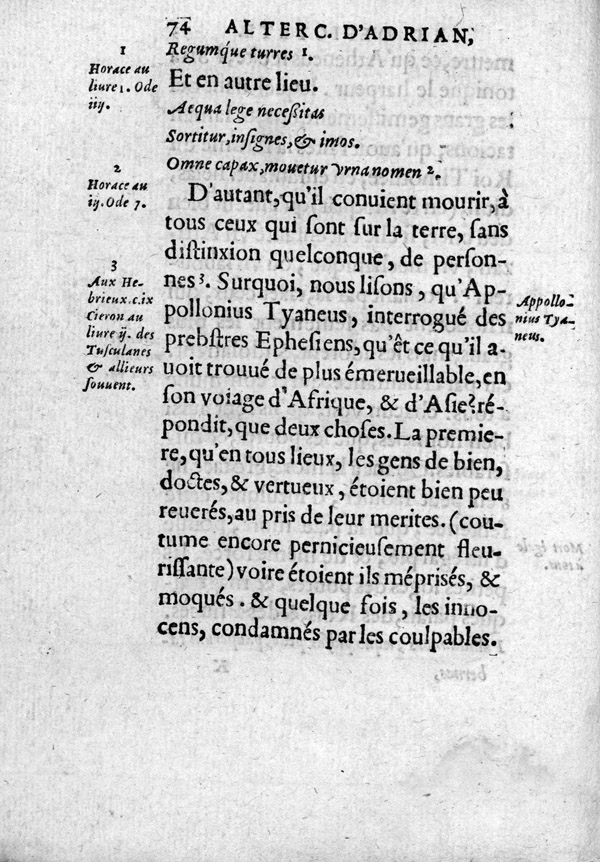 74 ALTERC. D'ADRIAN,
1
Horace au
liure 1. Ode
iiij.
Regumq́ue turres 1.
Et en autre lieu.
Aequa lege neceſsitas
Sortitur, inſignes, & imos.
Omne capax, mouetur vrna nomen 2.
2
Horace au
ij. Ode 7.
D'autant, qu'il conuient mourir, à
tous ceux qui ſont ſur la terre, ſans
diſtinxion quelconque, de perſon-
nes 3. Surquoi, nous liſons, qu'Ap-
pollonius Tyaneus, interrogué des
prebſtres Epheſiens, qu'êt ce qu'il a-
uoit trouué de plus émerueillable, en
ſon voiage d'Afrique, & d'Aſie? ré-
pondit, que deux choſes. La premie-
re, qu'en tous lieux, les gens de bien,
doctes, & vertueux, étoient bien peu
reuerés, au pris de leur merites. (cou-
tume encore pernicieuſement fleu-
riſſante) voire étoient ils mépriſés, &
moqués. & quelque fois, les inno-
cens, condamnés par les coulpables.
3
Aux He-
brieux. c. ix
Cieron au
liure ij. des
Tuſculanes
& allieurs
ſouuent.
Appollo-
nius Tya-
neus.